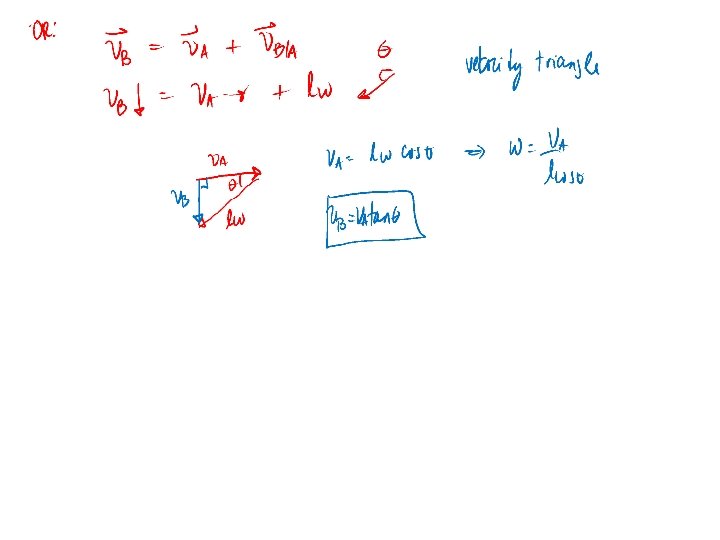 OR:
v⃗_B = v⃗_A + v⃗_B/A
v_B ↓ = v_A → + lω ↙ θ
velocity triangle
v_A
θ
v_B
lω
v_A = lω cosθ ⇒ ω = v_A / lcosθ
v_B = v_A tanθ